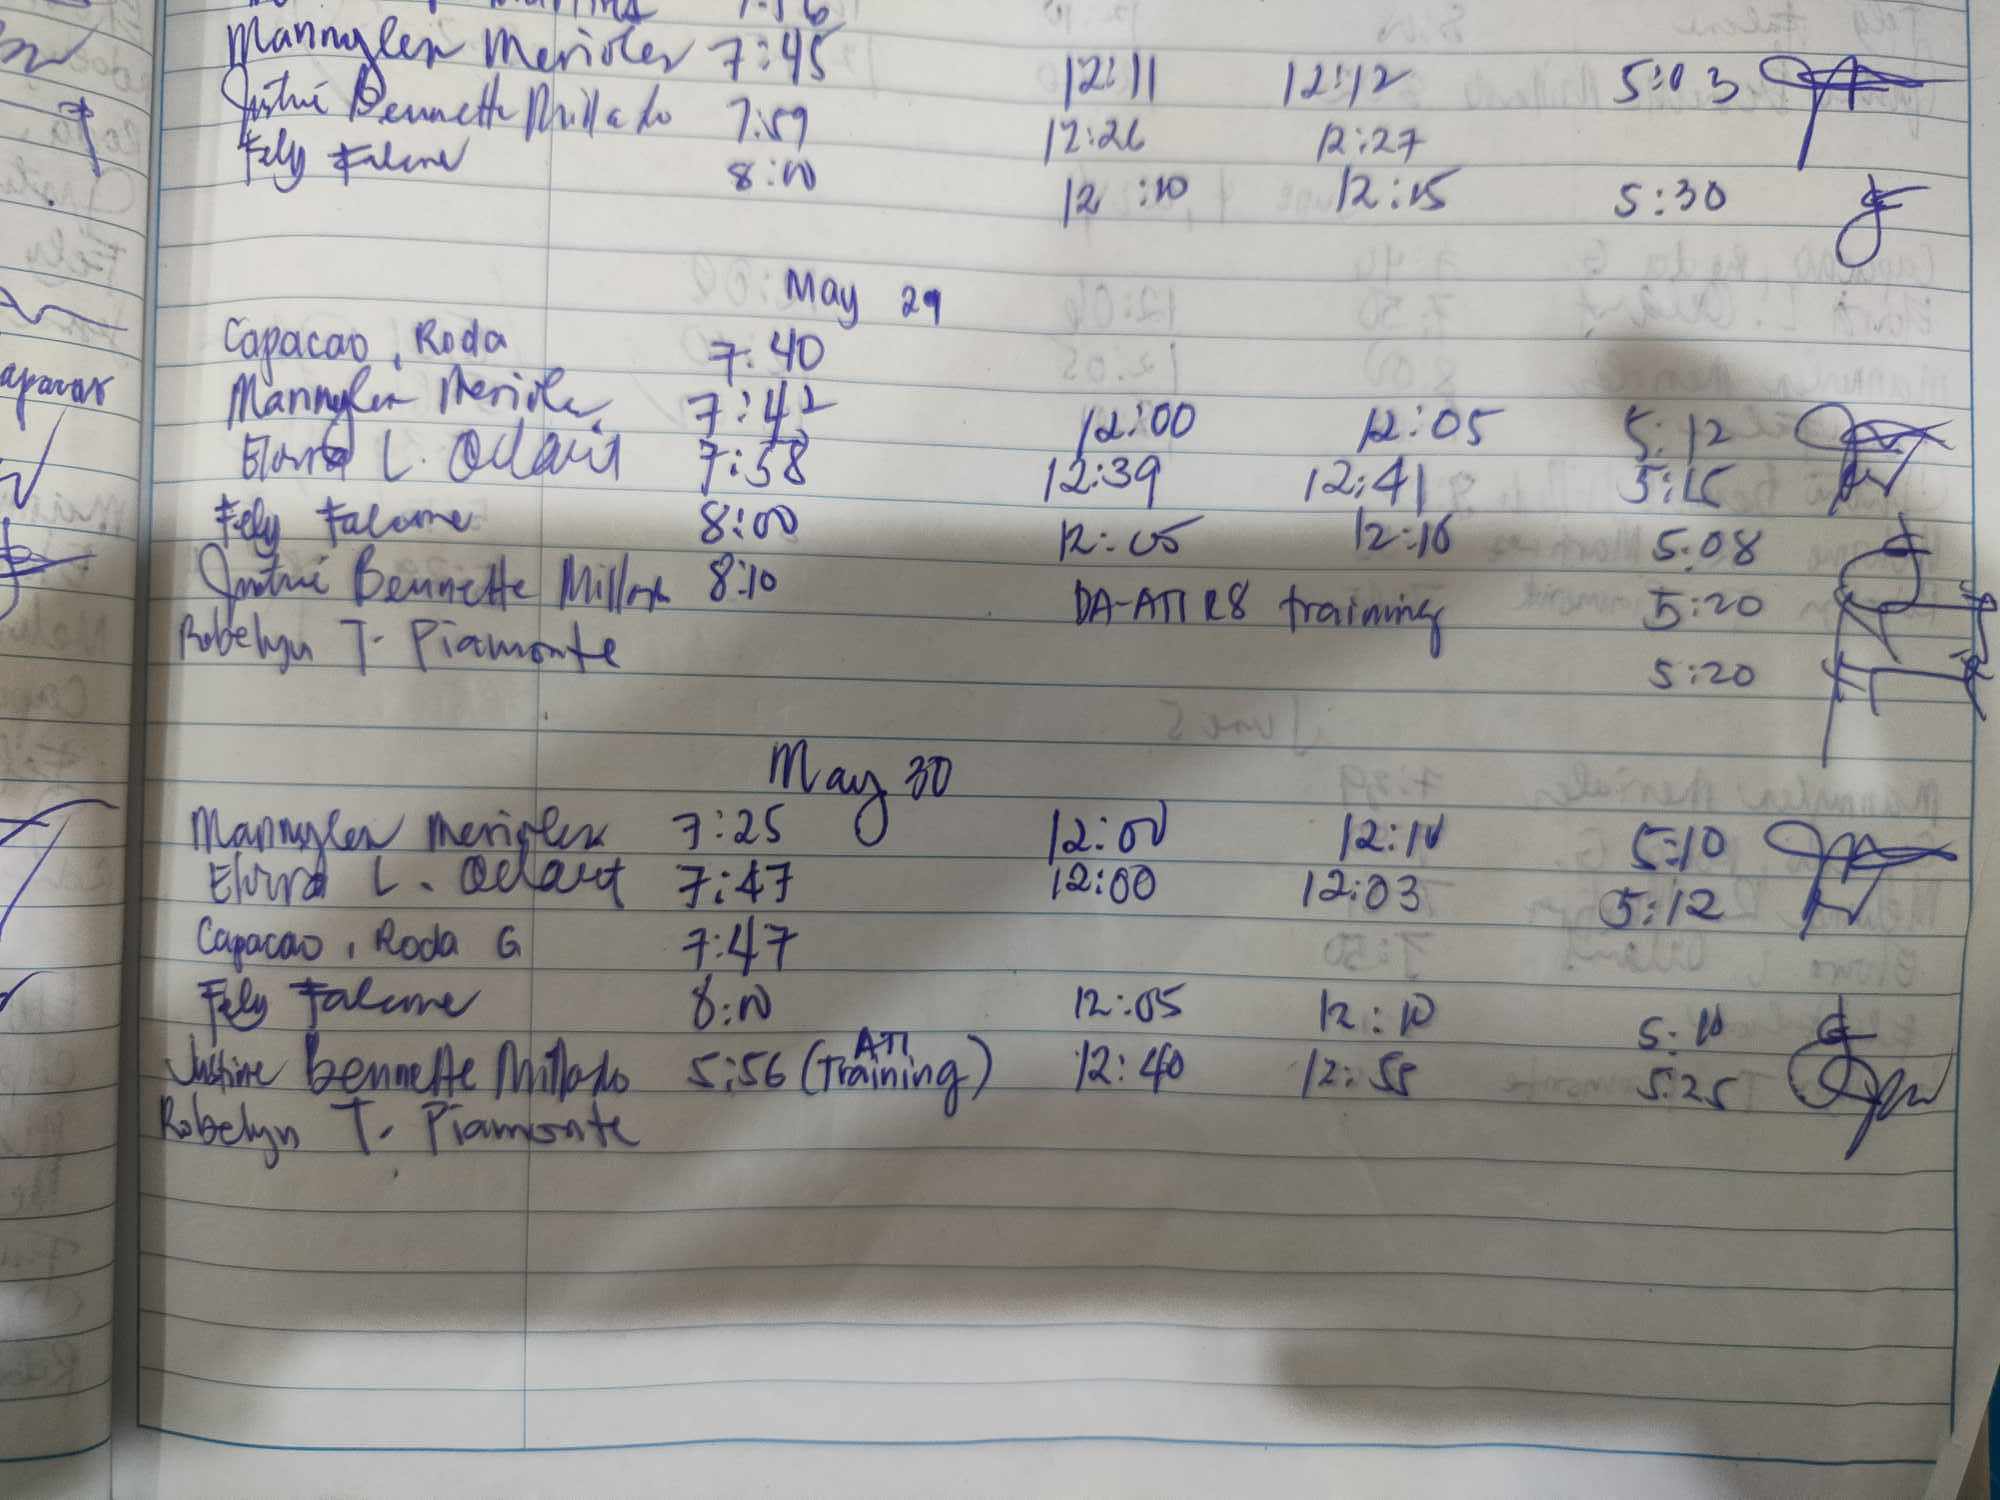 7:56
Mannylen Merioles 7:45 12:11 12:12 5:03
Justine Bennette Millado 7:59 12:26 12:27
Fely Falcone 8:00 12:10 12:15 5:30
May 29
Capacao, Roda 7:40
Mannylen Merioles 7:42 12:00 12:05 5:12
Elvira L. 7:58 12:39 12:41 5:15
Fely Falcone 8:00 12:05 12:10 5:08
Justine Bennette Millado 8:10 DA-ATI R8 training 5:20
Robelyn T. Piamonte 5:20
May 30
Mannylen Merioles 7:25 12:00 12:10 5:10
Elvira L. 7:47 12:00 12:03 5:12
Capacao, Roda G 7:47
Fely Falcone 8:00 12:05 12:10 5:10
Justine Bennette Millado 5:56 (ATI Training) 12:40 12:55 5:25
Robelyn T. Piamonte